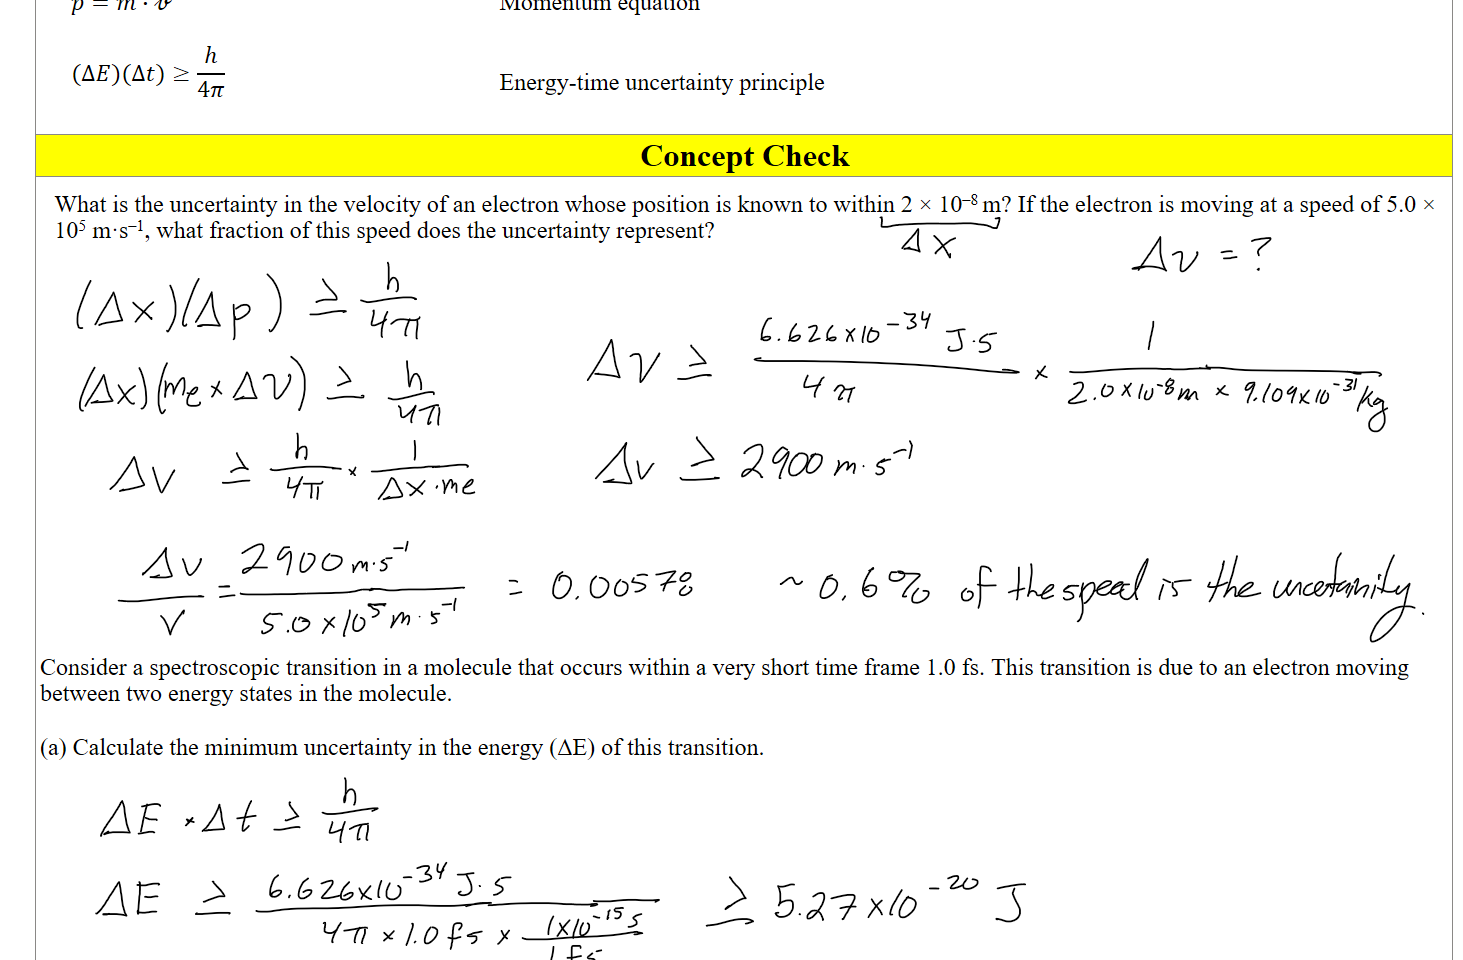 p = m · v Momentum equation
(ΔE)(Δt) ≥ h/4π Energy-time uncertainty principle
Concept Check
What is the uncertainty in the velocity of an electron whose position is known to within 2 × 10⁻⁸ m? If the electron is moving at a speed of 5.0 ×
10⁵ m·s⁻¹, what fraction of this speed does the uncertainty represent?
Δx
Δv = ?
(Δx)(Δp) ≥ h/4π
(Δx)(me × Δv) ≥ h/4π
Δv ≥ h/4π × 1/Δx·me
Δv ≥ 6.626×10⁻³⁴ J·s/4π × 1/2.0×10⁻⁸m × 9.109×10⁻³¹ kg
Δv ≥ 2900 m·s⁻¹
Δv/v = 2900 m·s⁻¹/5.0×10⁵ m·s⁻¹ = 0.00578 ~ 0.6% of the speed is the uncetainity.
Consider a spectroscopic transition in a molecule that occurs within a very short time frame 1.0 fs. This transition is due to an electron moving
between two energy states in the molecule.
(a) Calculate the minimum uncertainty in the energy (ΔE) of this transition.
ΔE × Δt ≥ h/4π
ΔE ≥ 6.626×10⁻³⁴ J·s/4π × 1.0 fs × 1×10⁻¹⁵ s/1 fs ≥ 5.27×10⁻²⁰ J